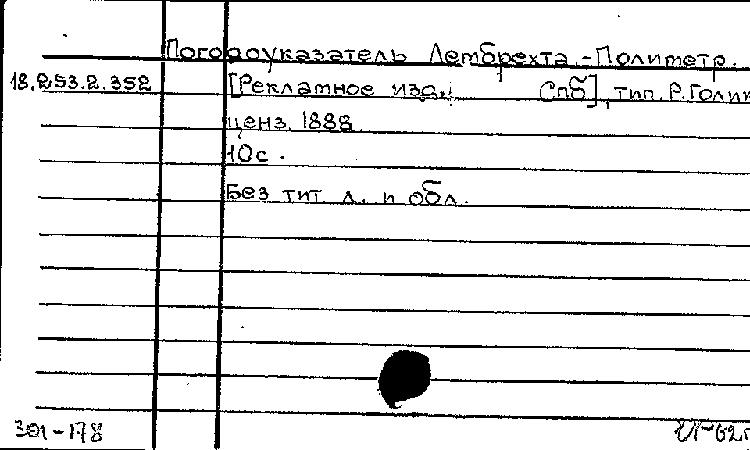 Погодоуказатель Лембрехта.-Полиметр.
18.253.2.352
[Рекламное изд., СПб], тип. Р. Голик
ценз. 1888
10с.
Без тит. л. и обл.
301-178